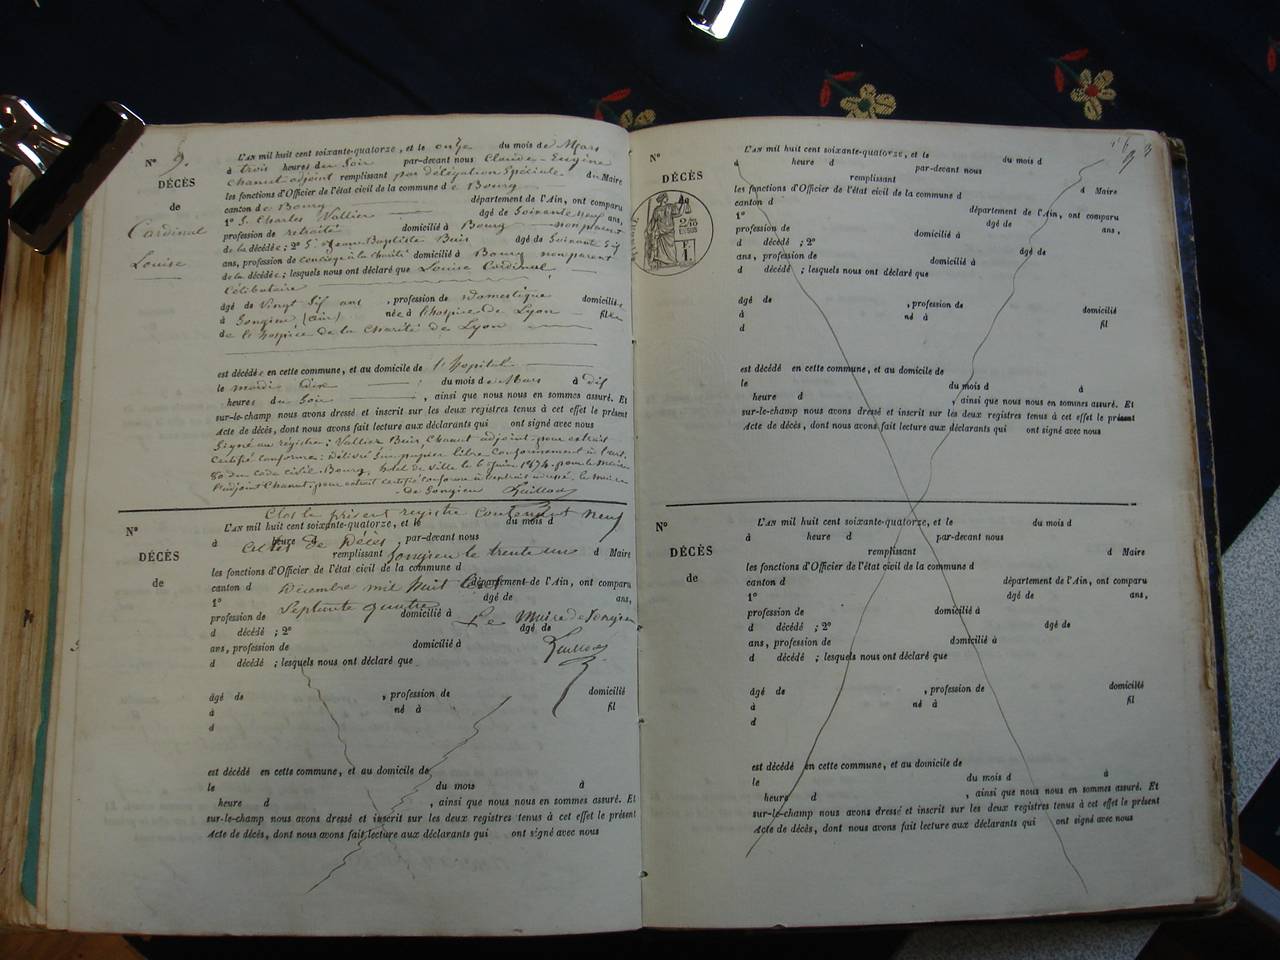 N° 9.
DÉCÈS
de
Cardinal
Louise
L'AN mil huit cent soixante-quatorze, et le onze du mois de Mars
à trois heures du Soir par-devant nous Claude-Eugène
Chanut adjoint remplissant par délégation Spéciale du Maire
les fonctions d'Officier de l'état civil de la commune de Bourg
canton de Bourg département de l'Ain, ont comparu
1° S. Charles Vallier âgé de Soixante neuf ans,
profession de retraité domicilié à Bourg non parent
de la décédée ; 2° S. Jean Baptiste Buis âgé de Soixante Six
ans, profession de concierge à la charité domicilié à Bourg non parent
de la décédée ; lesquels nous ont déclaré que Louise Cardinal
Célibataire
âgé de Vingt Six ans , profession de Domestique domiciliée
à Songieu (Ain) née à l'hospice de Lyon fille
de l'hospice de la Charité de Lyon
est décédée en cette commune, et au domicile de l'hopital
le mardi dix du mois de Mars à dix
heures du Soir , ainsi que nous nous en sommes assuré. Et
sur-le-champ nous avons dressé et inscrit sur les deux registres tenus à cet effet le présent
Acte de décès, dont nous avons fait lecture aux déclarants qui ont signé avec nous
Signé au régistre : Vallier Buis, Chanut adjoint pour extrait
Certifié conforme : Délivré sur papier libre conformément à l'art.
80 du code civil. Bourg, hotel de Ville le 6 Juin 1874. pour le Maire
l'adjoint Chanut. pour extrait certifié conforme le Maire
de Songieu
Clos le présent registre contenant neuf
actes de Décès. Songieu le trente un
Décembre mil huit cent
Septante quatre
Le Maire de Songieu
N°
DÉCÈS
de
L'AN mil huit cent soixante-quatorze, et le du mois d
à heure d par-devant nous
remplissant d Maire
les fonctions d'Officier de l'état civil de la commune d
canton d département de l'Ain, ont comparu
1° âgé de ans,
profession de domicilié à
d décédé ; 2° âgé de
ans, profession de domicilié à
d décédé ; lesquels nous ont déclaré que
âgé de , profession de domicilié
à né à fil
d
est décédé en cette commune, et au domicile de
le du mois d à
heure d , ainsi que nous nous en sommes assuré. Et
sur-le-champ nous avons dressé et inscrit sur les deux registres tenus à cet effet le présent
Acte de décès, dont nous avons fait lecture aux déclarants qui ont signé avec nous
N°
DÉCÈS
L'AN mil huit cent soixante-quatorze, et le du mois d
à heure d par-devant nous
remplissant d Maire
les fonctions d'Officier de l'état civil de la commune d
canton d département de l'Ain, ont comparu
1° âgé de ans,
profession de domicilié à
d décédé ; 2° âgé de
ans, profession de domicilié à
d décédé ; lesquels nous ont déclaré que
âgé de , profession de domicilié
à né à fil
d
est décédé en cette commune, et au domicile de
le du mois d à
heure d , ainsi que nous nous en sommes assuré. Et
sur-le-champ nous avons dressé et inscrit sur les deux registres tenus à cet effet le présent
Acte de décès, dont nous avons fait lecture aux déclarants qui ont signé avec nous
N°
DÉCÈS
de
L'AN mil huit cent soixante-quatorze, et le du mois d
à heure d par-devant nous
remplissant d Maire
les fonctions d'Officier de l'état civil de la commune d
canton d département de l'Ain, ont comparu
1° âgé de ans,
profession de domicilié à
d décédé ; 2° âgé de
ans, profession de domicilié à
d décédé ; lesquels nous ont déclaré que
âgé de , profession de domicilié
à né à fil
d
est décédé en cette commune, et au domicile de
le du mois d à
heure d , ainsi que nous nous en sommes assuré. Et
sur-le-champ nous avons dressé et inscrit sur les deux registres tenus à cet effet le présent
Acte de décès, dont nous avons fait lecture aux déclarants qui ont signé avec nous